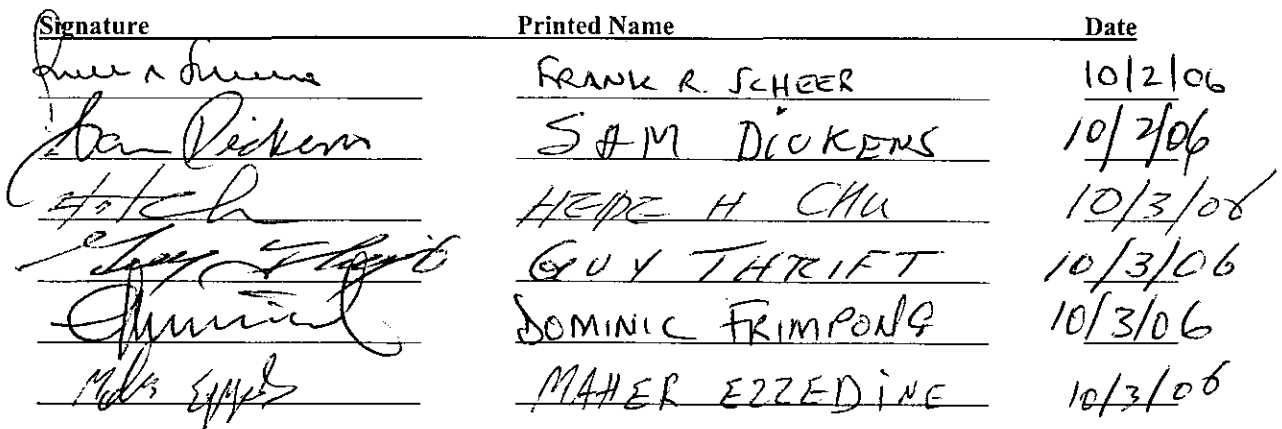 Signature Printed Name Date
FRANK R. SCHEER 10/2/06
Sam Dickens SAM DICKENS 10/2/06
H CHU 10/3/06
Guy Thrift GUY THRIFT 10/3/06
DOMINIC FRIMPONG 10/3/06
MAHER EZZEDINE 10/3/06